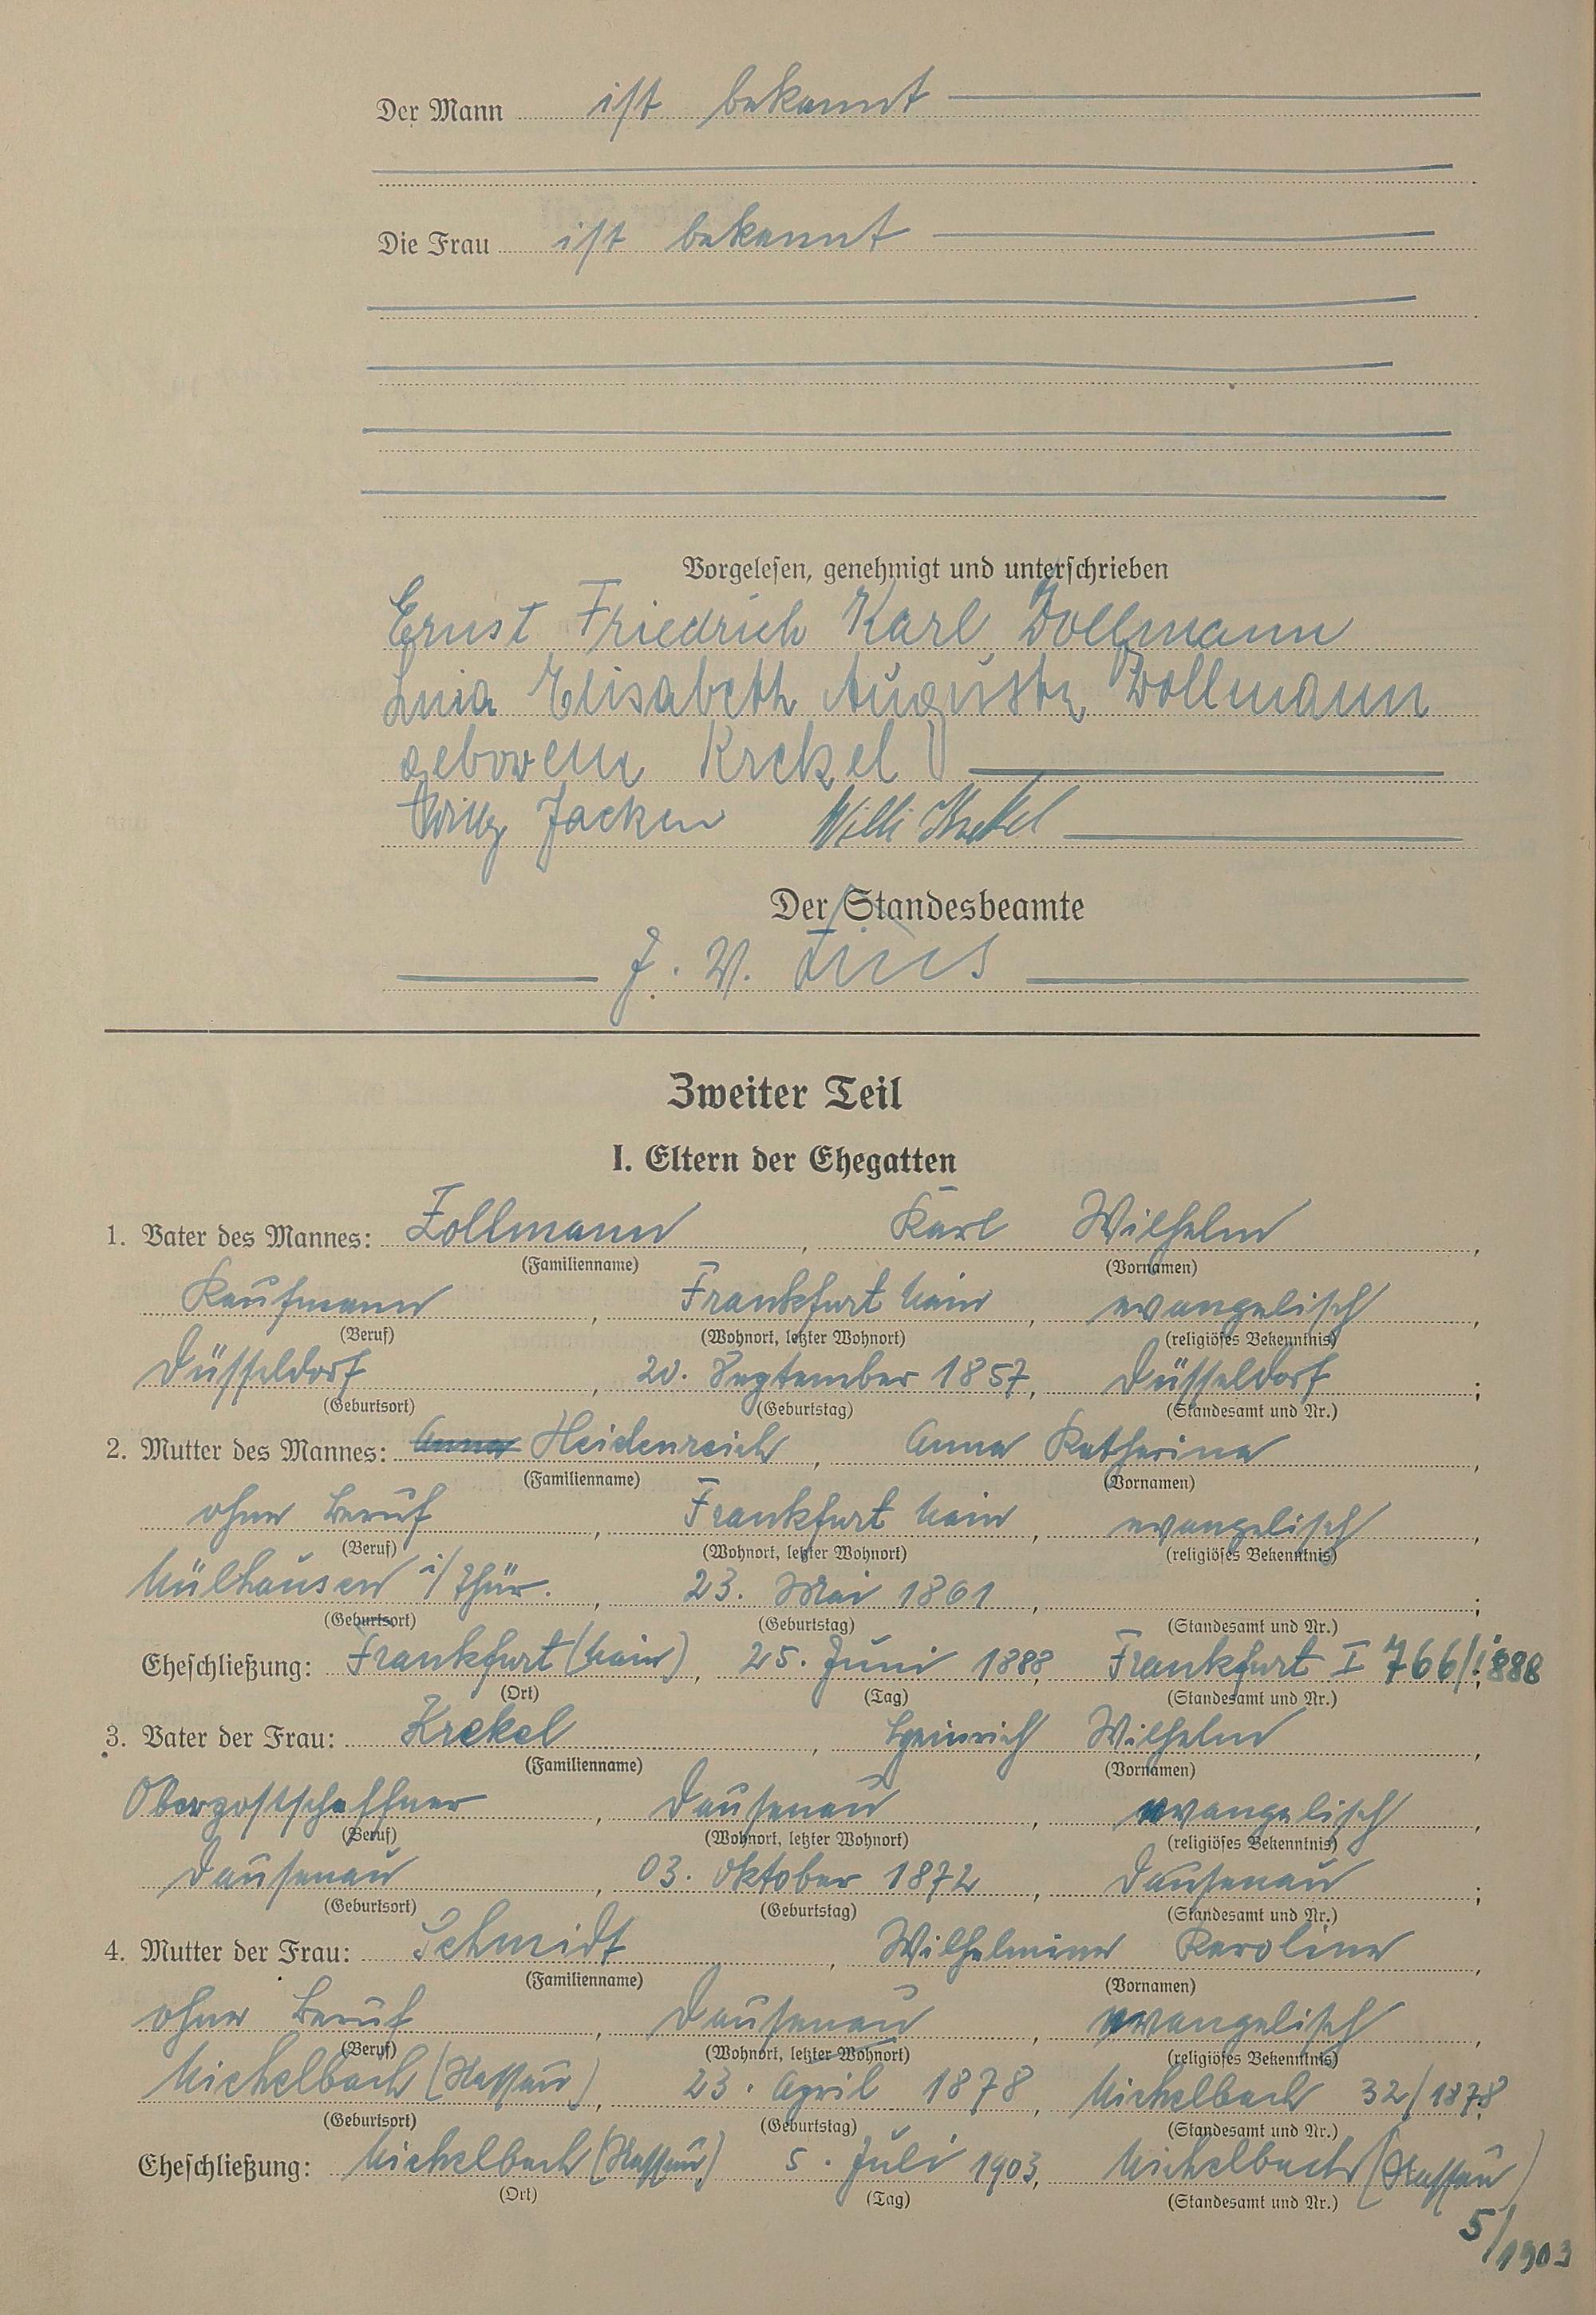 Der Mann ist bekannt
Die Frau ist bekannt
Vorgelesen, genehmigt und unterschrieben
Ernst Friedrich Karl Zollmann
Elisabeth Auguste Zollmann
geborene Krekel
Willy Jacken Willi Krekel
Der Standesbeamte
J. V.
Zweiter Teil
I. Eltern der Ehegatten
1. Vater des Mannes: Zollmann, Karl Wilhelm,
(Familienname) (Vornamen)
Kaufmann, Frankfurt Main, evangelisch,
(Beruf) (Wohnort, letzter Wohnort) (religiöses Bekenntnis)
Düsseldorf, 20. September 1857, Düsseldorf;
(Geburtsort) (Geburtstag) (Standesamt und Nr.)
2. Mutter des Mannes: Anna Heidenreich, Anna Katharina,
(Familienname) (Vornamen)
ohne Beruf, Frankfurt Main, evangelisch,
(Beruf) (Wohnort, letzter Wohnort) (religiöses Bekenntnis)
Mülhausen i/Thür., 23. Mai 1861, ;
(Geburtsort) (Geburtstag) (Standesamt und Nr.)
Eheschließung: Frankfurt (Main), 25. Juni 1888, Frankfurt I 766/1888
(Ort) (Tag) (Standesamt und Nr.)
3. Vater der Frau: Krekel, Heinrich Wilhelm,
(Familienname) (Vornamen)
Oberpostschaffner, Dausenau, evangelisch,
(Beruf) (Wohnort, letzter Wohnort) (religiöses Bekenntnis)
Dausenau, 03. Oktober 1872, Dausenau;
(Geburtsort) (Geburtstag) (Standesamt und Nr.)
4. Mutter der Frau: Schmidt, Wilhelmine Karoline,
(Familienname) (Vornamen)
ohne Beruf, Dausenau, evangelisch,
(Beruf) (Wohnort, letzter Wohnort) (religiöses Bekenntnis)
Michelbach (Nassau), 23. April 1878, Michelbach 32/1878;
(Geburtsort) (Geburtstag) (Standesamt und Nr.)
Eheschließung: Michelbach (Nassau) 5. Juli 1903, Michelbach (Nassau)
(Ort) (Tag) (Standesamt und Nr.)
5/1903